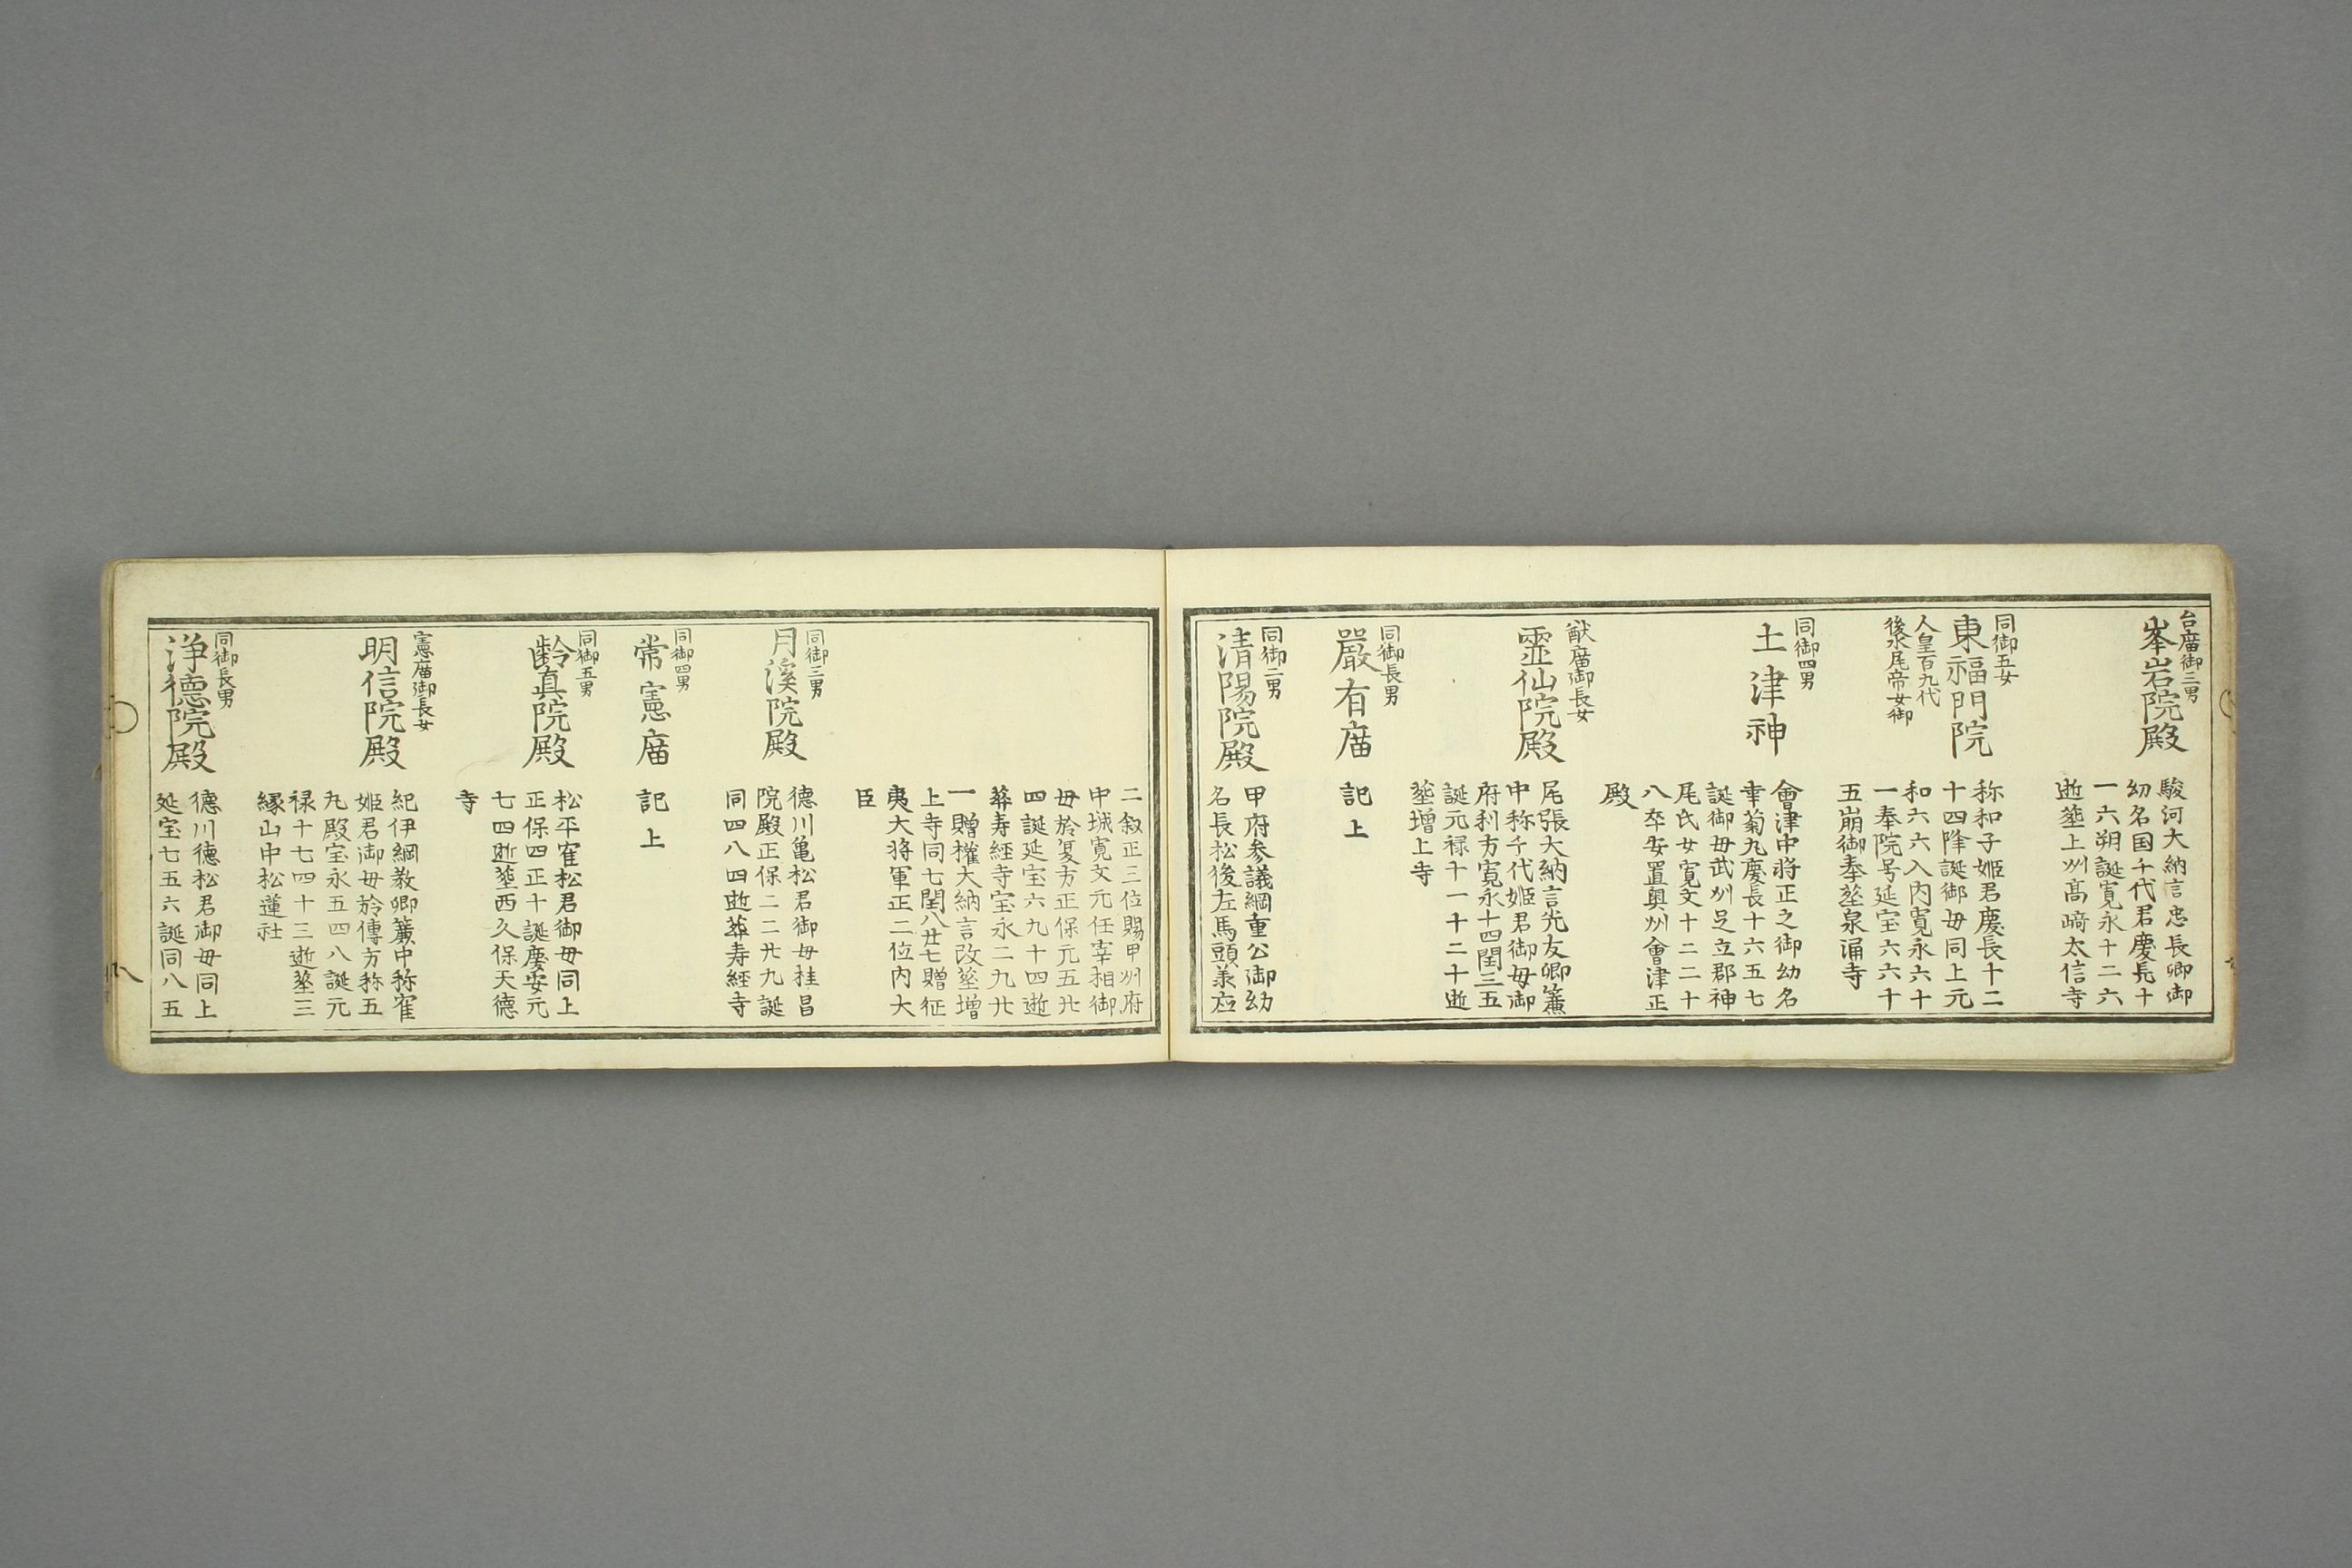 台廟御三男
峯岩院殿
駿河大納言忠長卿御
幼名国千代君慶長十
一六朔誕寛永十二六
逝葬上州髙﨑太信寺
同御五女
東福門院
人皇百九代
後水尾帝女御
称和子姫君慶長十二
十四降誕御母同上元
和六六入内寛永六十
一奉院号延宝六六十
五崩御奉葬泉涌寺
同御四男
土津神
會津中将正之御幼名
幸菊丸慶長十六五七
誕御母武州足立郡神
尾氏女寛文十二二十
八卒安置奥州會津正
殿
猷廟御長女
霊仙院殿
尾張大納言光友卿簾
中称千代姫君御母御
府利方寛永十四閏三五
誕元禄十一十二十逝
葬增上寺
同御長男
嚴有廟
記上
同御二男
清陽院殿
甲府参議綱重公御幼
名長松後左馬頭兼应
二叙正三位賜甲州府
中城寛文元任宰相御
母於夏方正保元五廿
四誕延宝六九十四逝
葬寿経寺宝永二九廿
一贈權大納言改葬增
上寺同七閏八廿七贈征
夷大将軍正二位内大
臣
同御三男
月溪院殿
德川亀松君御母桂昌
院殿正保二二廿九誕
同四八四逝葬寿経寺
同御四男
常憲廟
記上
同御五男
齢真院殿
松平寉松君御母同上
正保四正十誕慶安元
七四逝葬西久保天德
寺
憲廟御長女
明信院殿
紀伊綱教卿簾中称寉
姫君御母於傳方称五
丸殿宝永五四八誕元
禄十七四十三逝葬三
縁山中松蓮社
同御長男
浄德院殿
德川德松君御母同上
延宝七五六誕同八五
八